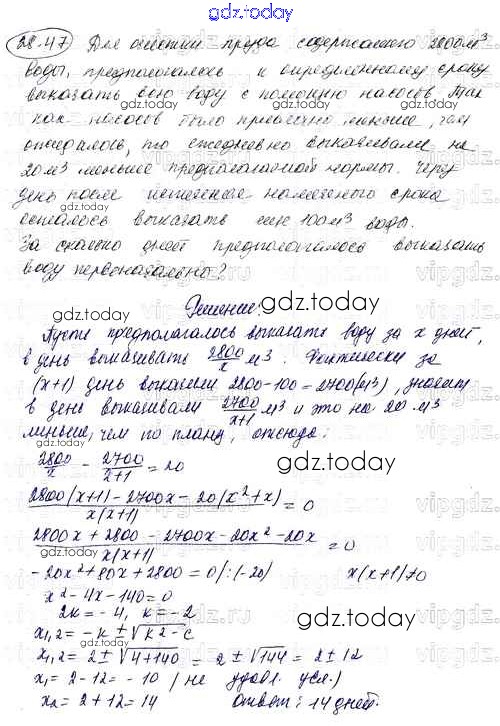 gdz.today
28.47 Для очистки пруда содержащего 2800 м³
воды, предполагалось к определенному сроку
выкачать всю воду с помощью насосов. Так
как насосов было прислано меньше, чем
ожидалось, то ежедневно выкачивали на
20 м³ меньше предполагаемой нормы. Через
день после истечения намеченного срока
осталось выкачать еще 100 м³ воды.
За сколько дней предполагалось выкачать
воду первоначально?
Решение:
Пусть предполагалось выкачать воду за x дней,
в день выкачивать 2800/x м³. Фактически за
(x+1) день выкачали 2800-100=2700(м³), значит
в день выкачивали 2700/x+1 м³ и это на 20 м³
меньше, чем по плану, отсюда:
2800/x - 2700/x+1 = 20
2800(x+1)-2700x-20(x²+x)/x(x+1) = 0
2800x+2800-2700x-20x²-20x/x(x+1) = 0
-20x²+80x+2800=0 /:(-20) x(x+1)≠0
x²-4x-140=0
2k=-4, k=-2
x₁,₂=-k±√k²-c
x₁,₂=2±√4+140 = 2±√144 = 2±12
x₁=2-12=-10 (не удовл. усл.)
x₂=2+12=14 Ответ: 14 дней.